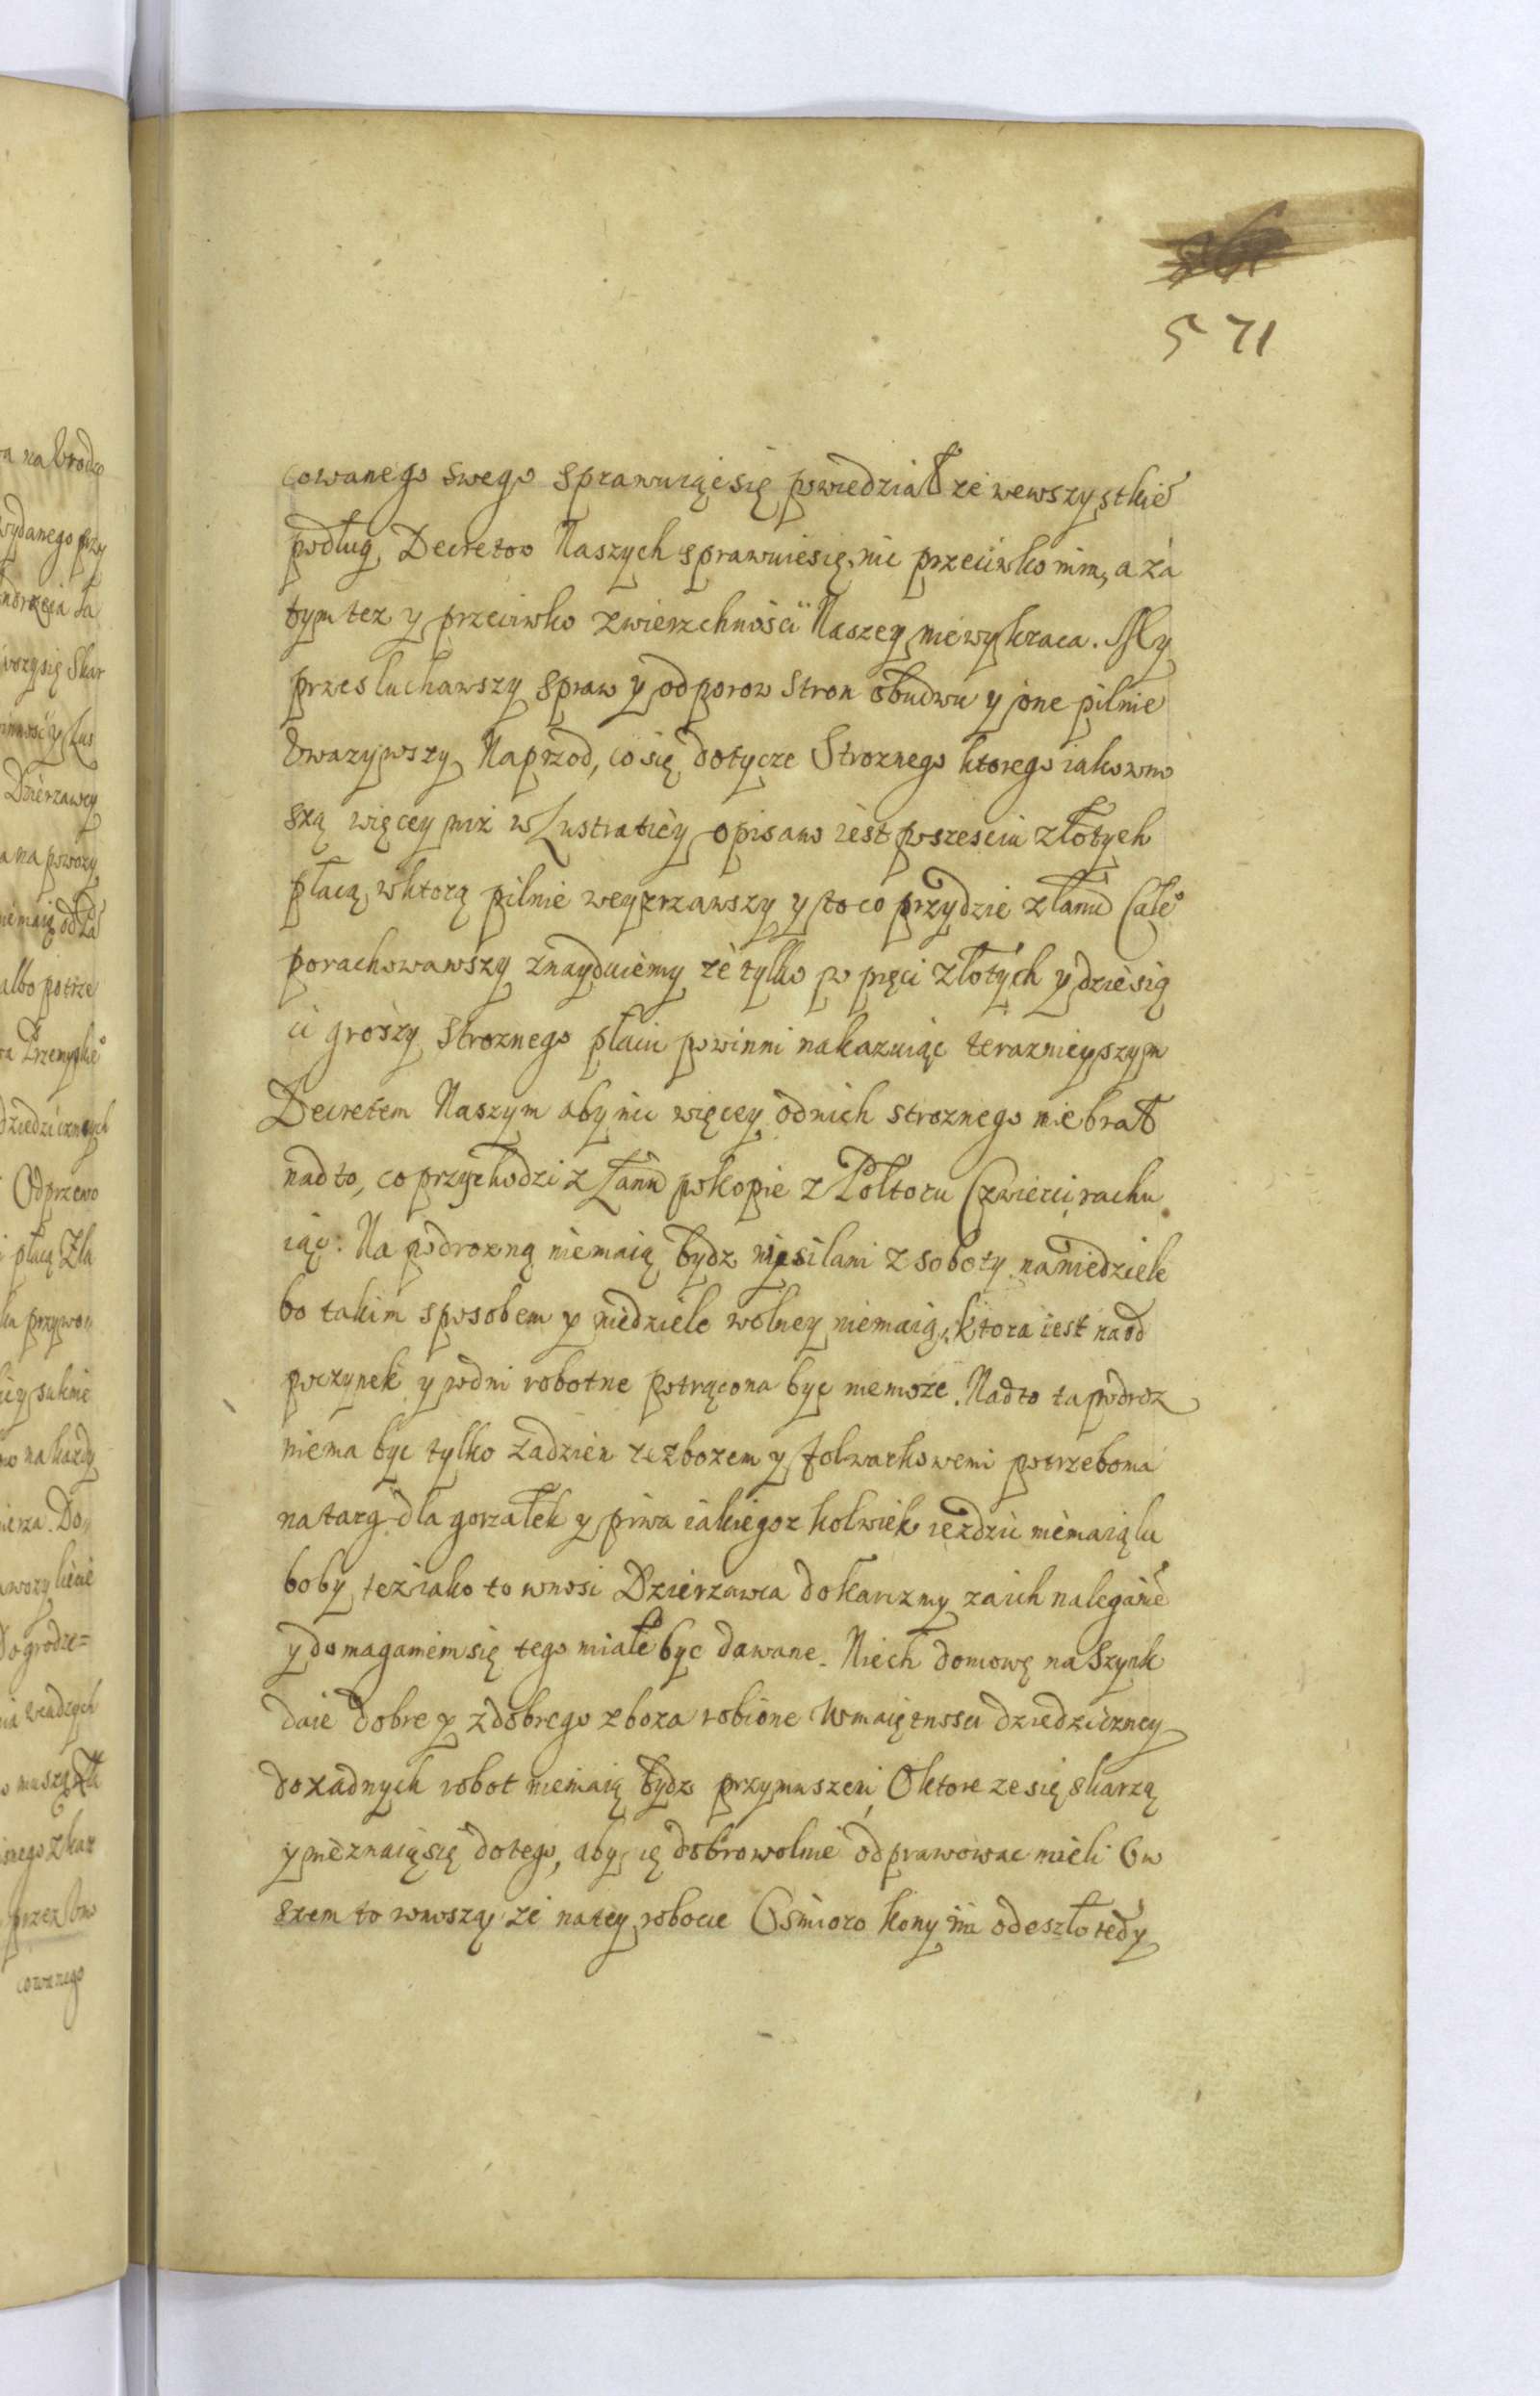 571
cowanego swego sprawuiącsię powiedział ze wewszystkie
podług Decretow Naszych sprawuiesię, nic przeciwko nim, a za
tym tez y przeciwko zwierzchności Naszey niewykraca. My
przesłuchawszy spraw y odporow stron obudwu y one pilnie
Uwazywszy Naprzod, cosię dotycze Stroznego ktorego iakowno
szą więcey niz w Lustratiey opisano iest poszesciu złotych
płacą, wktorą pilnie weyzrzawszy y toco przydzie złanu Całe°
porachowawszy znayduiemy ze tylko po pięci złotych y dziesią
ci groszy stroznego płacic powinni nakazuiąc teraznieyszym
Decretem Naszym aby nic więcey odnich stroznego niebrał
nadto, co przychodzi z Łanu pokopie z Połtoru Czwierci rachu
iąc. Na podrozną niemaią bydz wysilani z soboty naniedziele
bo takim sposobem y niedziele wolney niemaią, ktora iest naod
poczynek y wdni robotne potrącona byc niemoze. Nadto tapodroz
niema byc tylko zadzien zezbozem y folwarkowemi potrzeboma
natarg dla gorzałek y piwa iakiegoz kolwiek iezdzic niemaią lu
boby teziako to wnosi Dzierzawca dokarczmy zaich naleganie
y domaganiemsię tego miałe byc dawane. Niech domowę naszynk
daie dobre y zdobrego zboza robione Wmaiętnosci dziedziczney
dozadnych robot niemaią bydz przymuszeni, Oktore zesię skarzą
y nieznaiąsię dotego, aby ię dobrowolnie odprawowac mieli Ow
szem to wnoszą ze natey robocie Ośmioro kony im odeszło tedy